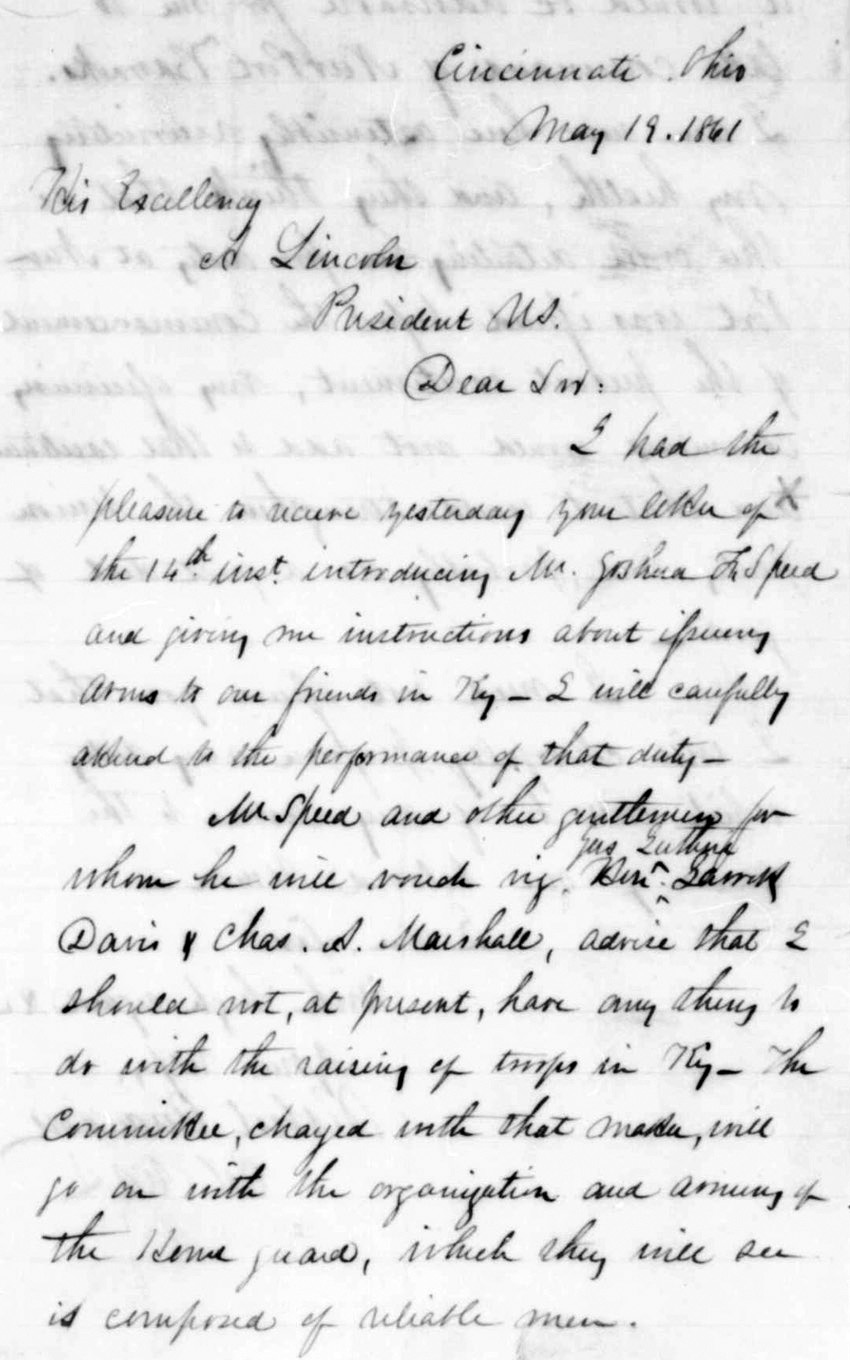 Cincinnati. Ohio
May 19. 1861
His Excellency
A Lincoln
President U.S.
Dear Sir:
I had the
pleasure to receive yesterday your letter of
the 14th. inst. introducing Mr. Joshua F. Speed
and giving me instructions about issuing
arms to our friends in Ky – I will carefully
attend to the performance of that duty –
Mr. Speed and other gentlemen for
Jas Guthrie
whom he will vouch viz. Hon. Garrett
Davis & Chas. A. Marshall, advise that I
should not, at present, have any thing to
do with the raising of troops in Ky – The
Committee, charged with that matter, will
go on with the organization and arming of
the Home guard, which they will see
is composed of reliable men.